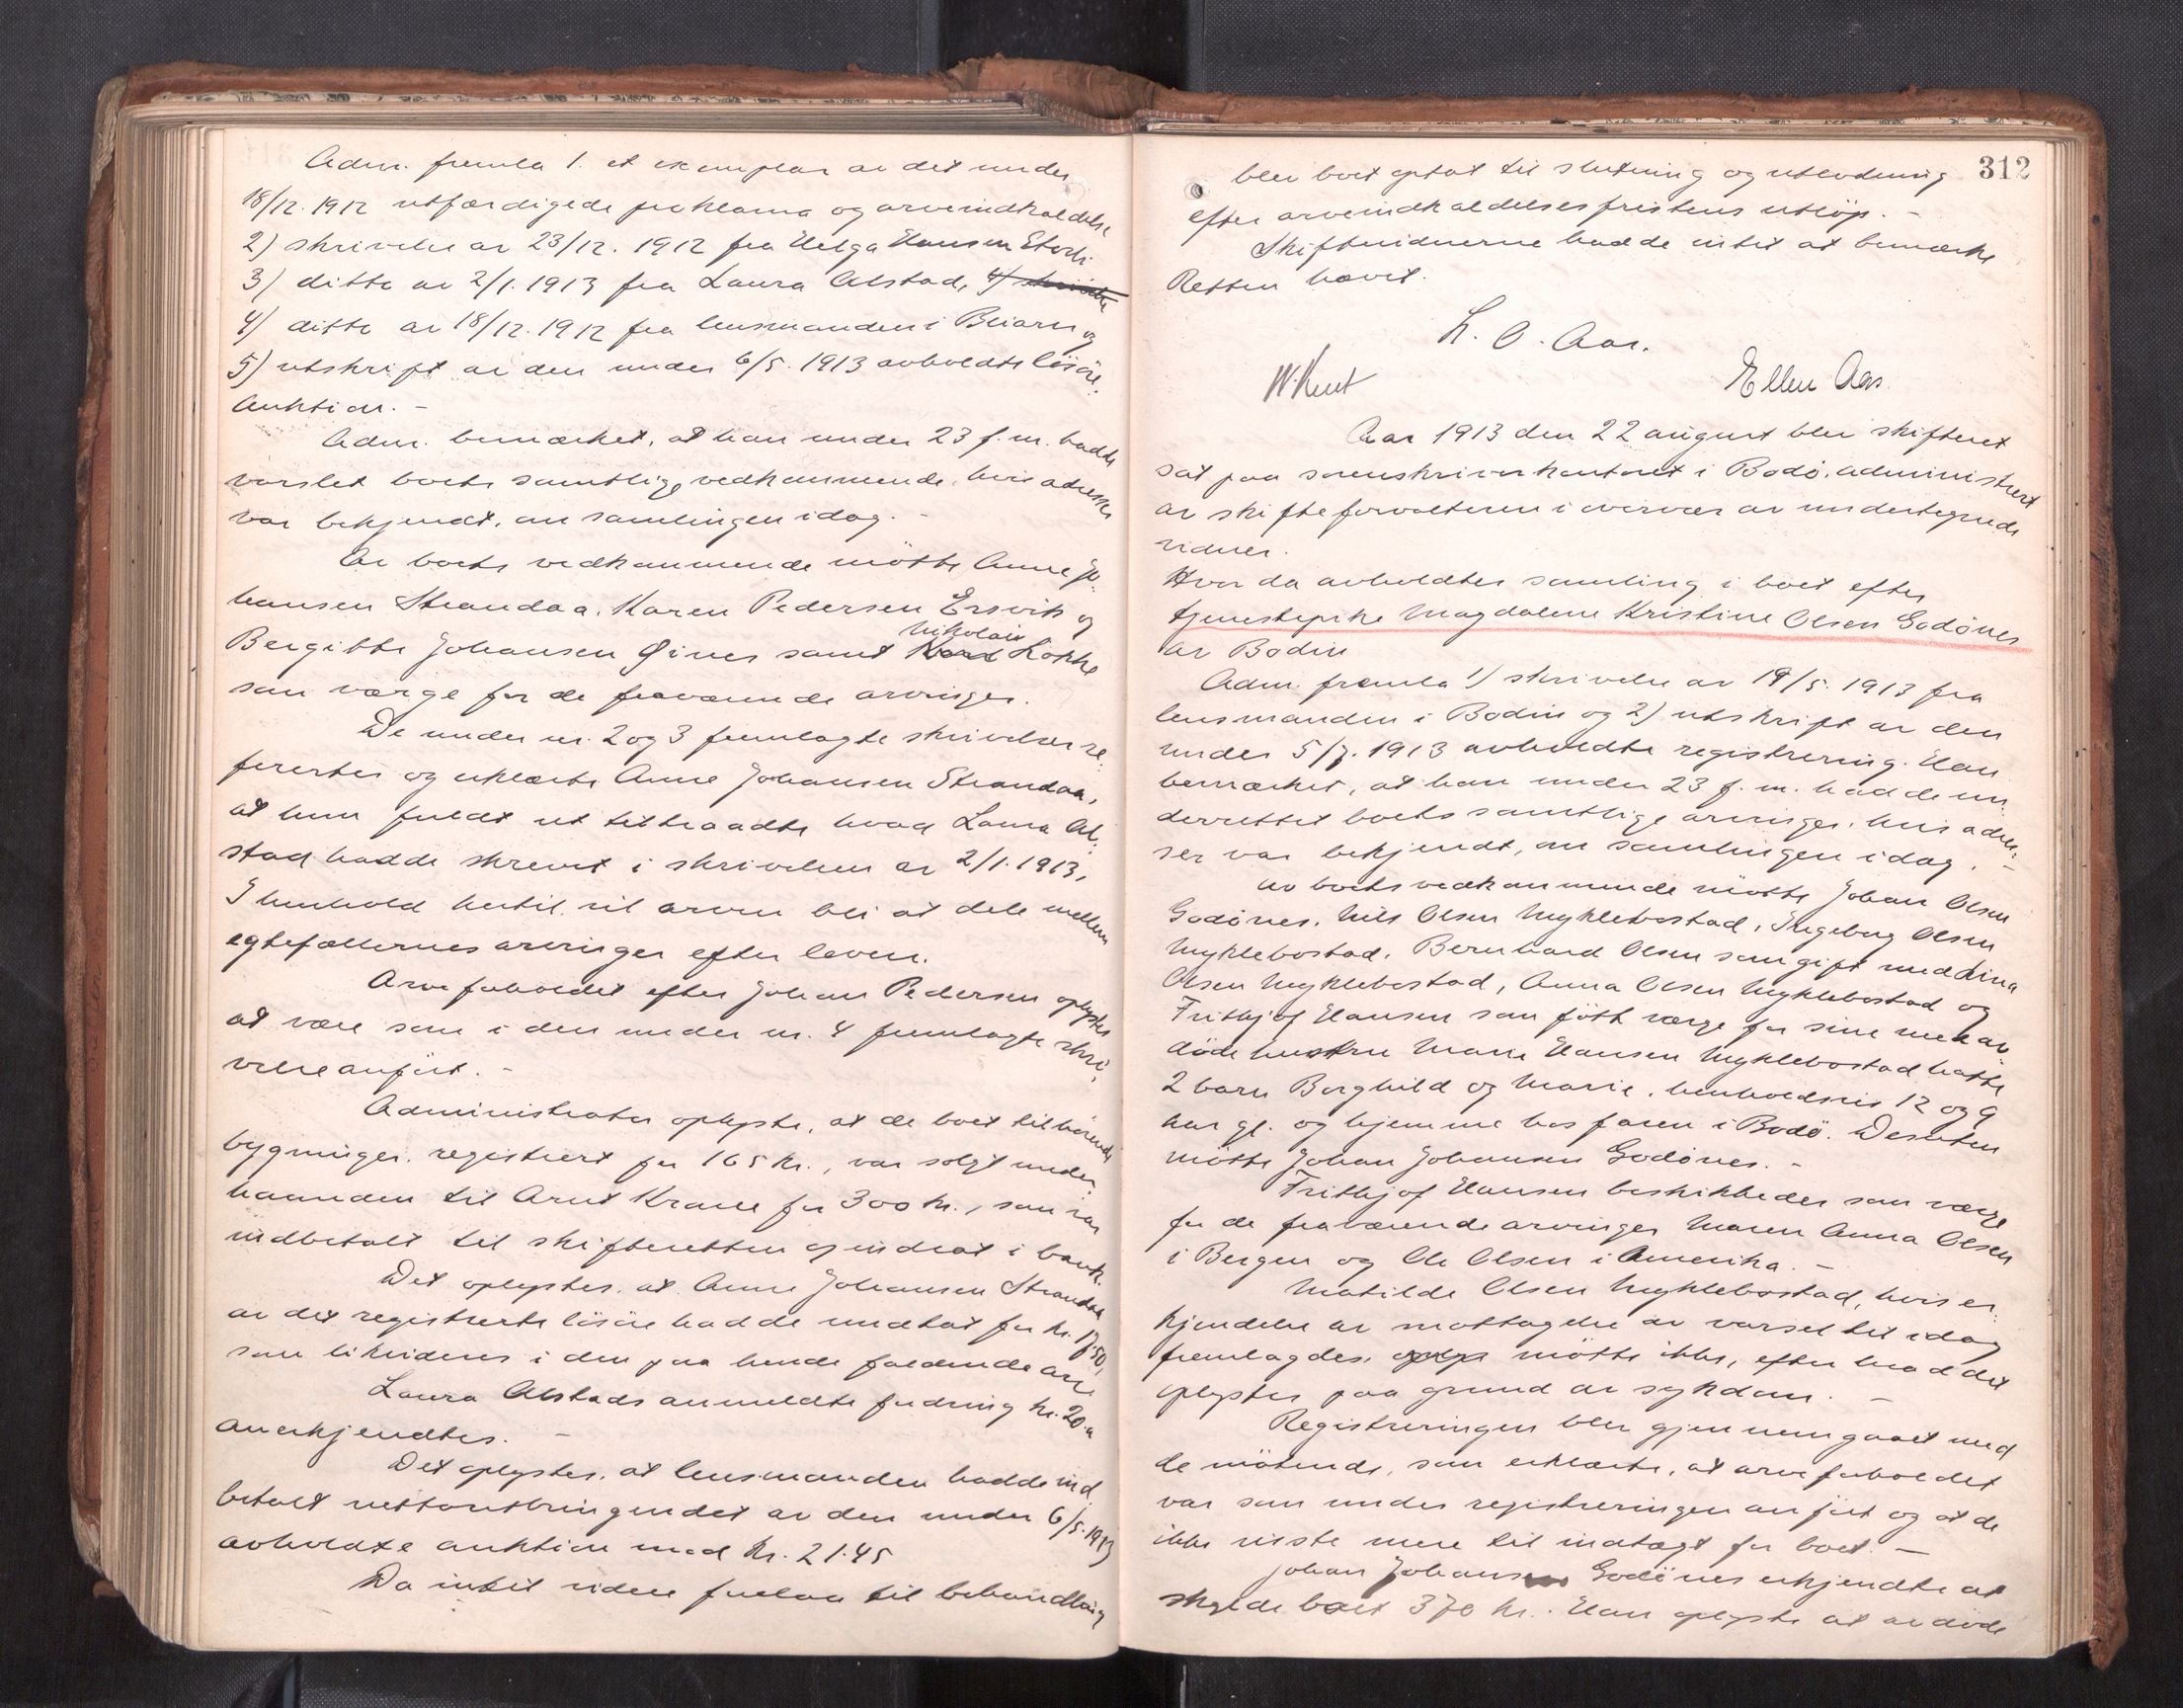 Adm. fremla 1. et exemplar av det under
18/12. 1912 utfærdigede proklama og arveindkaldelse
2) skrivelse av 23/12. 1912 fra Helga Hansen
3) ditto av 2/1. 1913 fra Laura Alstad,
4) ditto av 18/12. 1912 fra lensmanden i Beiarn og
5) utskrift av den under 6/5. 1913 avholdte lösöre-
auktion. -
Adm. bemærket, at han under 23 f. m. hadde
varslet boets samtlige vedkommende, hvis adresser
var bekjendt, om samlingen idag. -
Av boets vedkommende mötte Anne Jo-
hansen Strandaa, Karen Pedersen Ersvik og
Bergitte Johansen Gines samt Nikolai Løkke
som værge for de fraværende arvinger.
De under nr. 2 og 3 fremlagte skrivelser re-
ferertes og erklærte Anne Johansen Strandaa,
at hun fuldt ut tiltraadte hvad Laura Al-
stad hadde skrevet i skrivelsen av 2/1. 1913,
I henhold hertil vil arven bli at dele mellem
egtefællernes arvinger efter loven.
Arveforholdet efter Johan Pedersen oplystes
at være som i den under nr. 4 fremlagte skri-
velse anført. -
Administrator oplyste, at de boet tilhörende
bygninger, registrert for 165 kr., var solgt under-
haanden til Arnt Kraale for 300 kr., som var
indbetalt til skifteretten og indsat i bank.
Det oplystes, at Anne Johansen Strandaa
av det registrerte lösöre hadde undtat for kr. 17,50,
som likvideres i den paa hende faldende arv
Laura Alstads anmeldte fordring kr. 20.-
anerkjendtes. -
Det oplystes, at lensmanden hadde ind
betalt nettoutbringendet av den under 6/5. 1913
avholdte auktion med kr. 21.45
Da intet videre forelaa til behandling
312
blev boet optat til slutning og utlodning
efter arveindkaldelsesfristens utlöp. -
Skiftevidnerne hadde intet at bemærke
Retten hævet.
L. O. Aas.
W. Kent
Ellen Aas
Aar 1913 den 22 august blev skifteret
sat paa sorenskriverkontoret i Bodö, administrert
av skifteforvalteren i overvær av undertegnede
vidner.
Hvor da avholdtes samling i boet efter
tjenestepike Magdalene Kristine Olsen Godönes
av Bodin
Adm. fremla 1) skrivelse av 19/5. 1913 fra
lensmanden i Bodin og 2) utskrift av den
under 5/7. 1913 avholdte registrering. Han
bemærket, at han under 23 f. m. hadde un-
derrettet boets samtlige arvinger, hvis adres-
ser var bekjendt, om samlingen idag. -
Av boets vedkommende mötte Johan Olsen
Godönes, Nils Olsen Myklebostad, Ingeborg Olsen
Myklebostad, Bernhard Olsen som gift med Lina
Olsen Myklebostad, Anna Olsen Myklebostad og
Fritjof Hansen som født værge for sine med av-
döde hustru Marie Hansen Myklebostad hatte
2 barn Borghild og Marie, henholdsvis 12 og 9
aar gl. og hjemme hos faren i Bodö. Desuten
mötte Johan Johansen Godönes. -
Fritjof Hansen beskikkedes som værge
for de fraværende arvinger Maren Anna Olsen
i Bergen og Ole Olsen i Amerika. -
Matilde Olsen Myklebostad, hvis er-
kjendelse av mottagelse av varsel til idag
fremlagdes, mötte ikke, efter hvad det
oplystes paa grund av sykdom. -
Registreringen blev gjennemgaaet med
de mötende, som erklærte, at arveforholdet
var som under registreringen anført og at de
ikke visste mere til indtægt for boet. -
Johan Johansen Godönes erkjendte at
skylde boet 370 kr. Han oplyste at avdöde